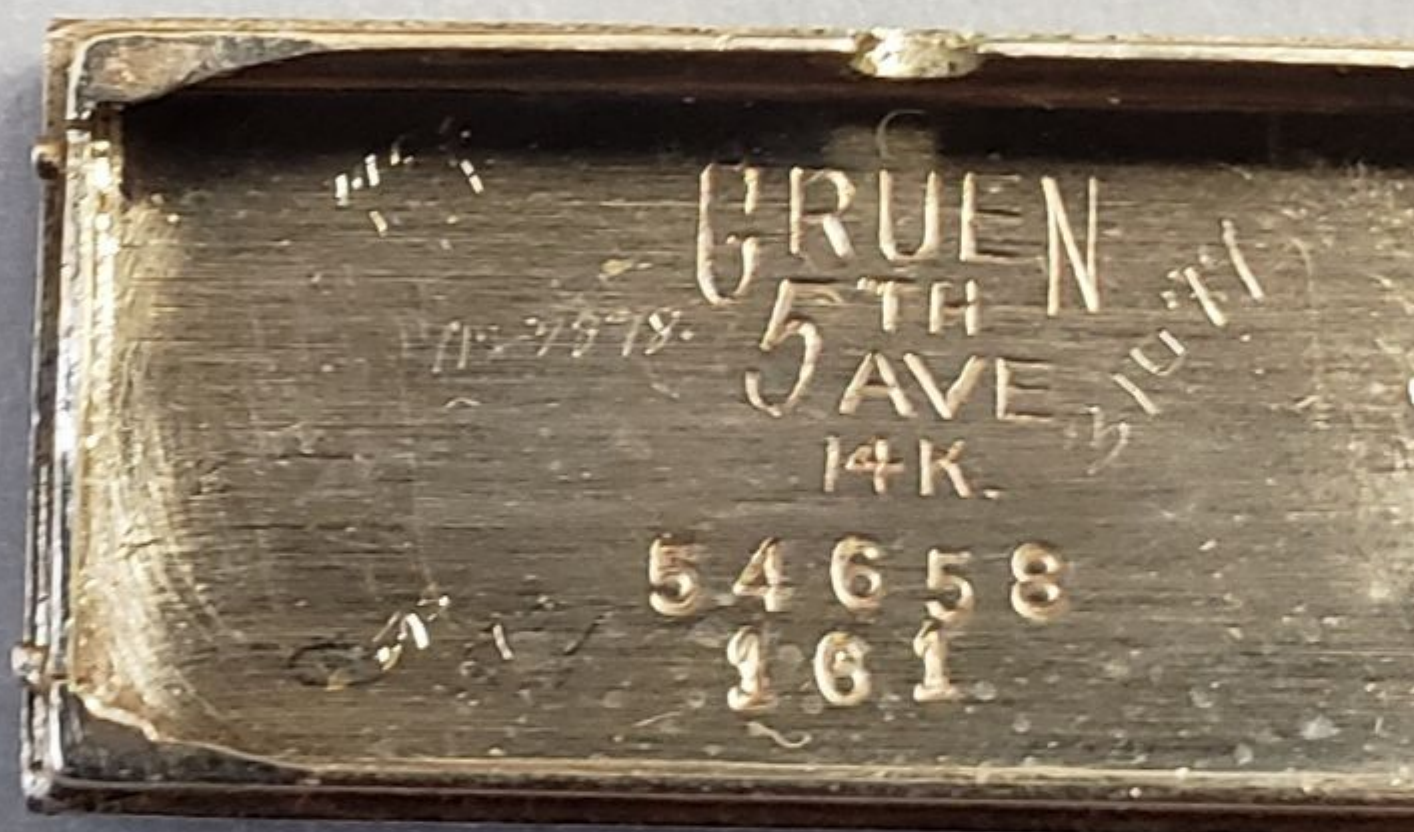 GRUEN
5TH
AVE
14K.
54658
161